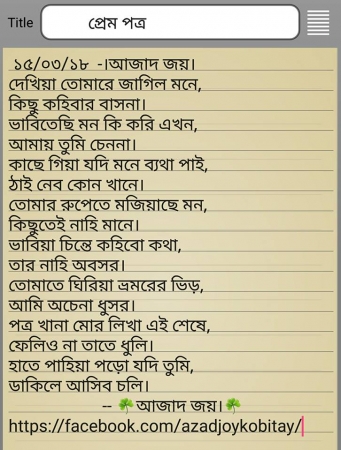 Title প্রেম পত্র
১৫/০৩/১৮ -।আজাদ জয়।
দেখিয়া তোমারে জাগিল মনে,
কিছু কহিবার বাসনা।
ভাবিতেছি মন কি করি এখন,
আমায় তুমি চেননা।
কাছে গিয়া যদি মনে ব্যথা পাই,
ঠাই নেব কোন খানে।
তোমার রুপেতে মজিয়াছে মন,
কিছুতেই নাহি মানে।
ভাবিয়া চিন্তে কহিবো কথা,
তার নাহি অবসর।
তোমাতে ঘিরিয়া ভ্রমরের ভিড়,
আমি অচেনা ধুসর।
পত্র খানা মোর লিখা এই শেষে,
ফেলিও না তাতে ধুলি।
হাতে পাহিয়া পড়ো যদি তুমি,
ডাকিলে আসিব চলি।
-- ☘আজাদ জয়।☘
https://facebook.com/azadjoykobitay/